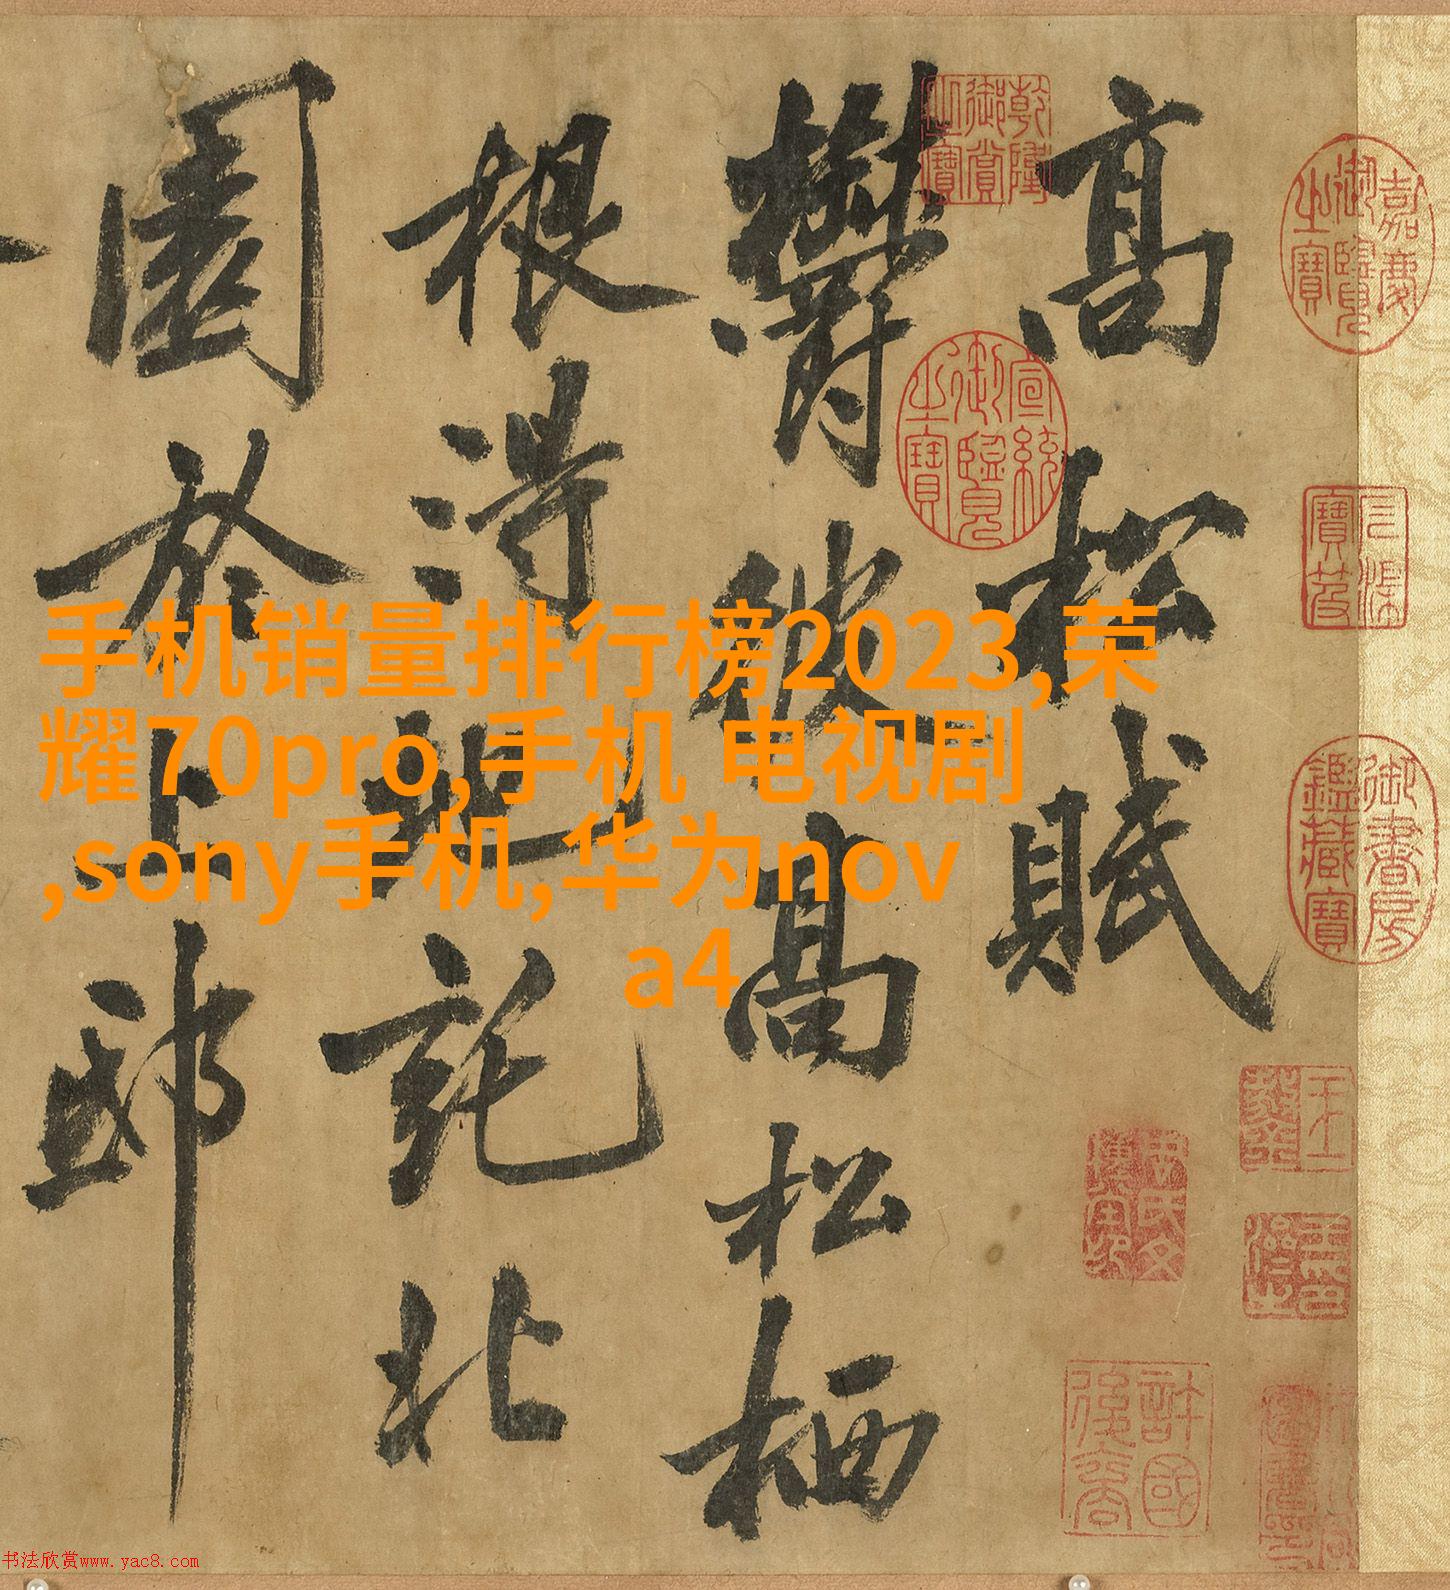 高松賦
鬱彼高松栖
根得地託北
園於上邸
乾隆御賞之寶
宣統御覽之寶
嘉慶御覽之寶
石渠寶笈
御書房鑑藏寶
許國後裔
手机销量排行榜2023,荣
耀70pro,手机 电视剧
,sony手机,华为nov
a4
书法欣赏www.yac8.com